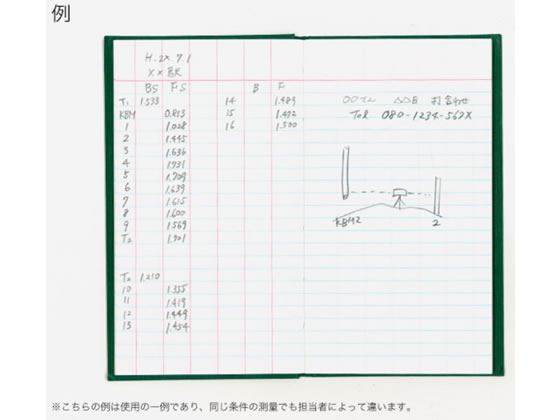 例
H.2x.7.1
××駅
BS FS B F
T1 1.533 14 1.489
KBM 0.813 15 1.492
1 1.028 16 1.500
2 1.445
3 1.636
4 1.731
5 1.709
6 1.639
7 1.615
8 1.600
9 1.569
T2 1.701
T2 1.210
10 1.355
11 1.419
12 1.449
13 1.454
〇〇さん △△日 打合わせ
Tel 080-1234-567X
KBM2 2
※こちらの例は使用の一例であり、同じ条件の測量でも担当者によって違います。